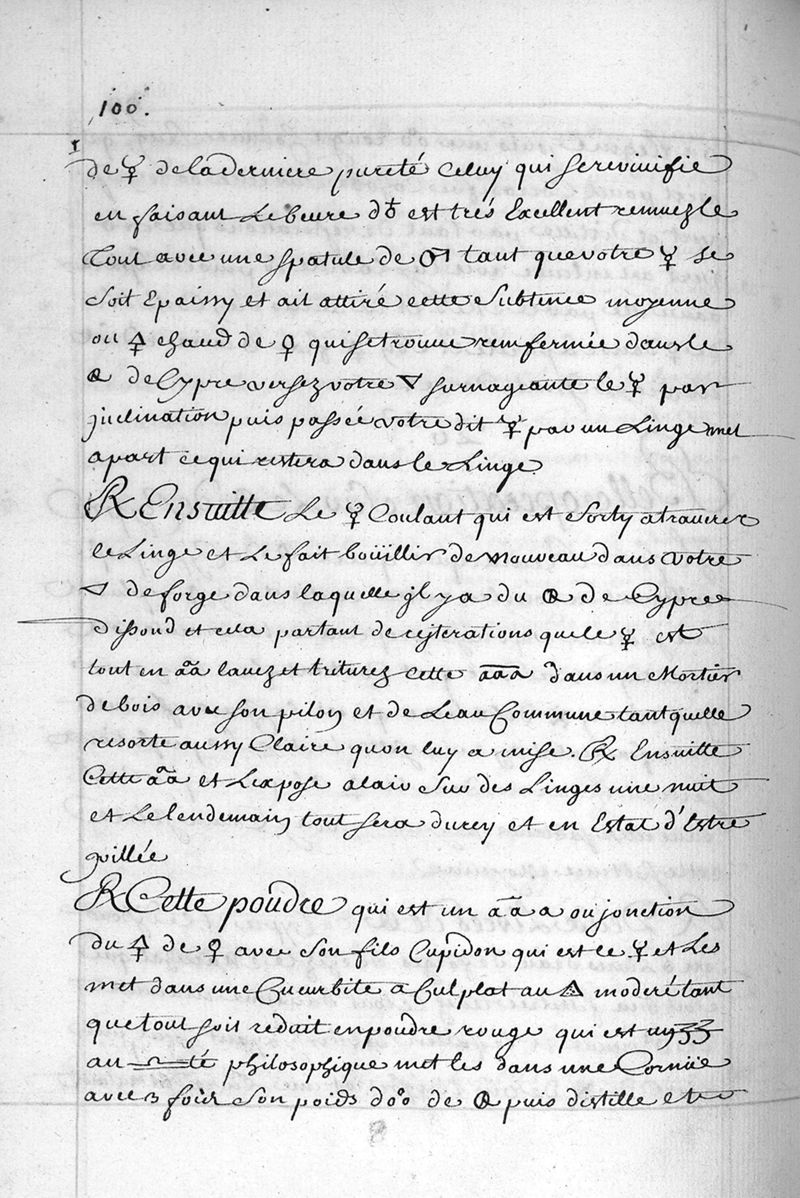 100.
de ☿ de la derniere pureté Celuy qui se revivifie
en faisant Le beure d♁ est trés Excellent remuez le
Tout avec une spatule de ♂ tant que votre ☿ se
soit Epaissy et ait attiré cette Subtence moyenne
ou 🜍 chaud de ♀ qui se trouve remfermée dans le
de Cypre versez votre 🜄 surnageante le ☿ par
jnclination puis passée votre dit ☿ par un Linge met
apart ce qui restera dans le Linge
℞ Ensuitte Le ☿ Coulant qui est Sorty atraverer
le Linge et Le fait boüillir de nouveau dans votre
🜄 de forge dans laquelle jl y a du de Cypre
dissoud et cela partant de rejterations que le ☿ est
tout en aã lavez et triturez cette aaa dans un Mortier
de bois avec son pilon et de Leau Commune tant quelle
resorte aussy Claire quon luy a mise. ℞ Ensuitte
Cette aãa et Lexpose alair Sur des Linges une nuit
et Le lendemain tout sera durcy et en Estat d'Estre
pillée
℞ Cette poudre qui est un aãa ou jonction
du 🜍 de ♀ avec Son fils Cupidon qui est le ☿ et Les
met dans une Cucurbite a Culplat au 🜂 moderé tant
que tout soit reduit en poudre rouge qui est
au philosophique met les dans une Cornüe
avec 3 foir Son poids de puis distille etc